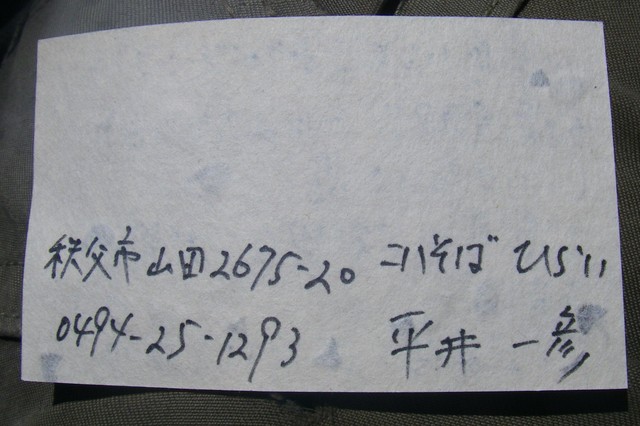 秩父市山田2675-20 こいそば ひらい
0494-25-1293 平井 一彦